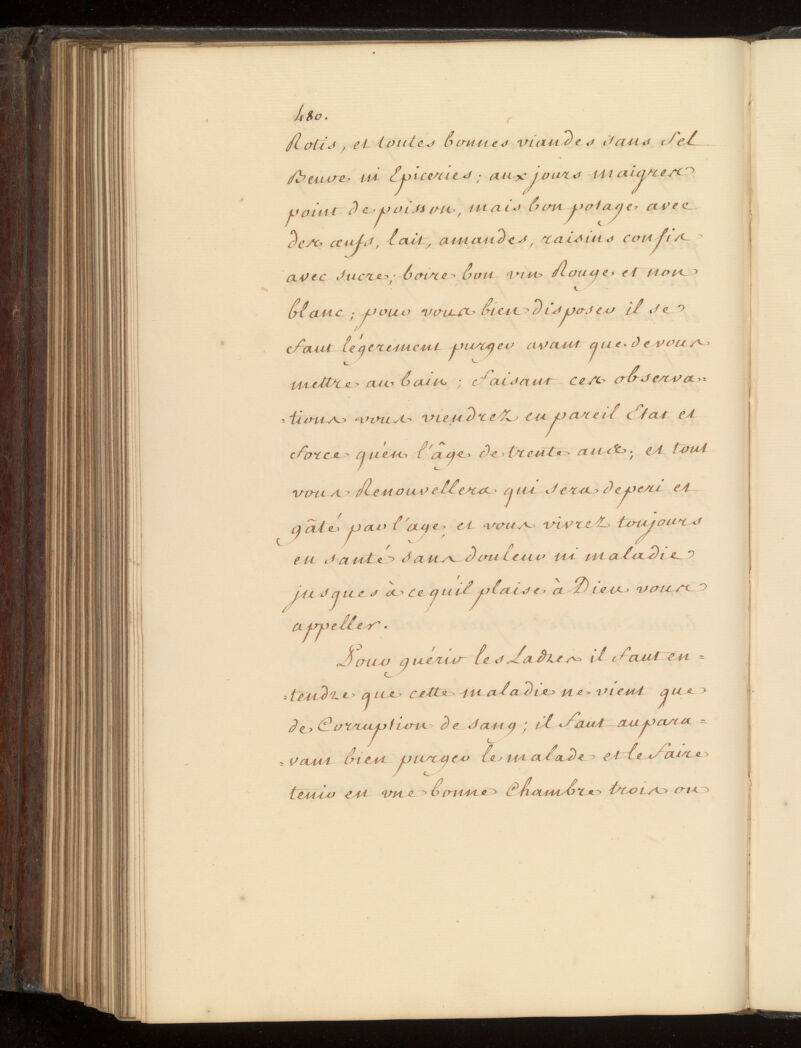 480.
Rotis, et toutes bonnes viandes sans sel
Beuve ni Epiceries; aux jours maigres
point de poisson, mais bon potage avec
des œufs, lait, amandes, raisins confis
avec sucre; boire bon vin Rouge et non
blanc; pour vous bien disposer il se
faut légerement purger avant que de vous
mettre au bain; faisant ces observa=
=tions vous viendrez en pareil Etat et
force qu'en l'âge de trente ans; et tout
vous Renouvellera qui sera deperi et
gâté par l'age, et vous vivrez toujours
en santé sans douleur ni maladie
jusques à ce qu'il plaise à Dieu vous
appeller.
Pour guérir les Ladres il faut en=
=tendre que cette maladie ne vient que
de Corruption de sang; il faut aupara=
=vant bien purger le malade et le faire
tenir en vne bonne Chambre trois ou